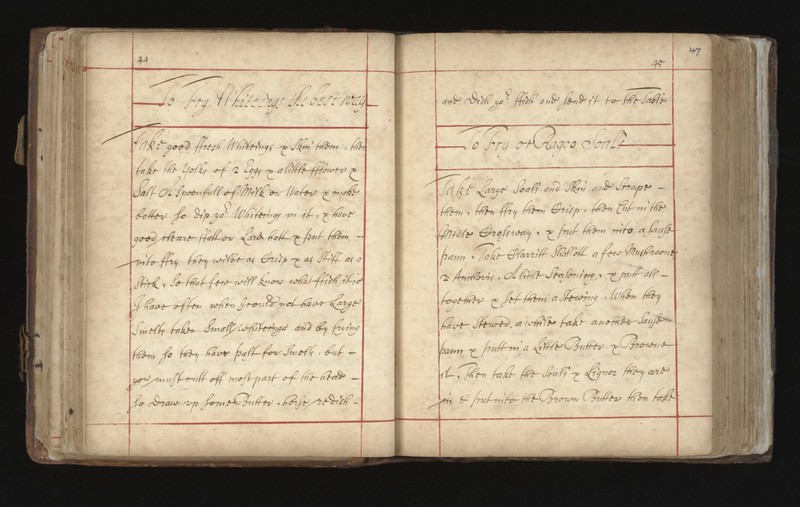 44
To Fry Whiteings the best way
Take good ffresh Whiteings & Skin them, then
take the Yolks of 2 Eggs & a little fflower &
Salt A Spoonfull of Milk or Water & make
batter so dip yor Whiteings in it, & have
good cleare ffatt or Lard hott & put them
into ffry they wilbe as Crisp & as Stiff as a
Stick, so that few will know what ffish it is
I have often when I could not have Large
Smelts taken Small whiteings and by frying
them so they have past for Smelts, but
you must cutt off most part of the head
so draw up some Butter, horse redish
47
45
and Dish yor ffish and send it to the Table
To Fry or Ragoo Soals
Take Large Soals and Skin and Scrape
them, then ffry them Crisp, then Cut in the
Midle Crossway, & put them into a Sause
pann, Take Clarritt Shallott a few Mushroons
2 Anchovis, A little Seasoning, & putt all
together & sett them a Stewing, When they
have Stewed a while take another Sause
pann & putt in a Little Butter & Browne
it, Then take the Soals & Liquor they are
in & put into the Brown Butter then take